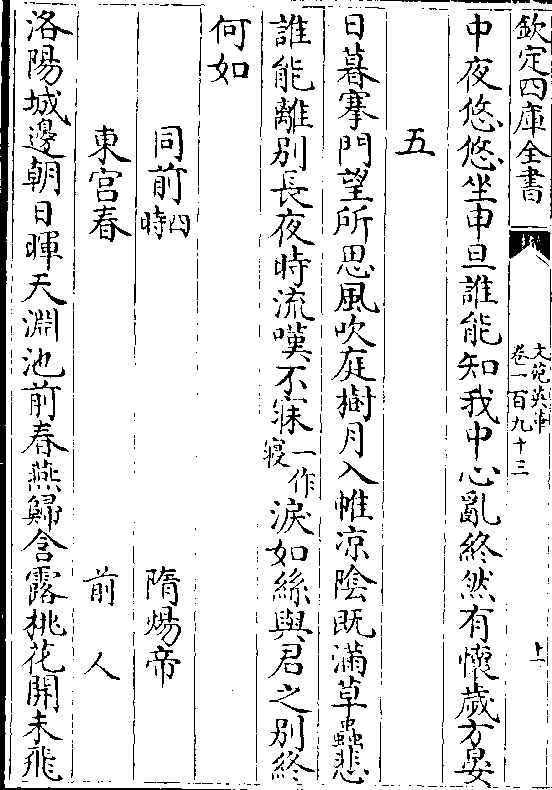 欽定四庫全書
文苑英華
卷一百九十三
中夜悠悠坐申旦誰能知我中心亂終然有懷歲方晏
五
日暮搴門望所思風吹庭樹月入帷凉陰既滿草蟲悲
誰能離別長夜時流嘆不寐一作寢淚如絲與君之別終
何如
同前四時 隋煬帝
東宮春 前人
洛陽城邊朝日暉天淵池前春燕歸含露桃花開未飛